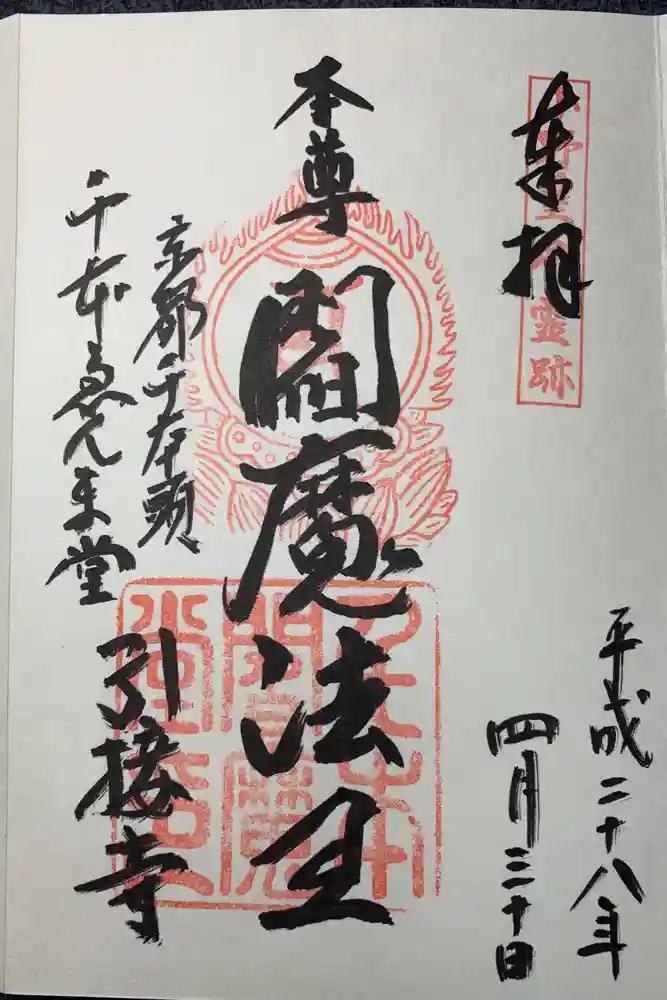 奉拝
靈跡
平成二十八年
四月三十日
本尊
閻魔法王
京都千本頭
千本ゑんま堂
引接寺